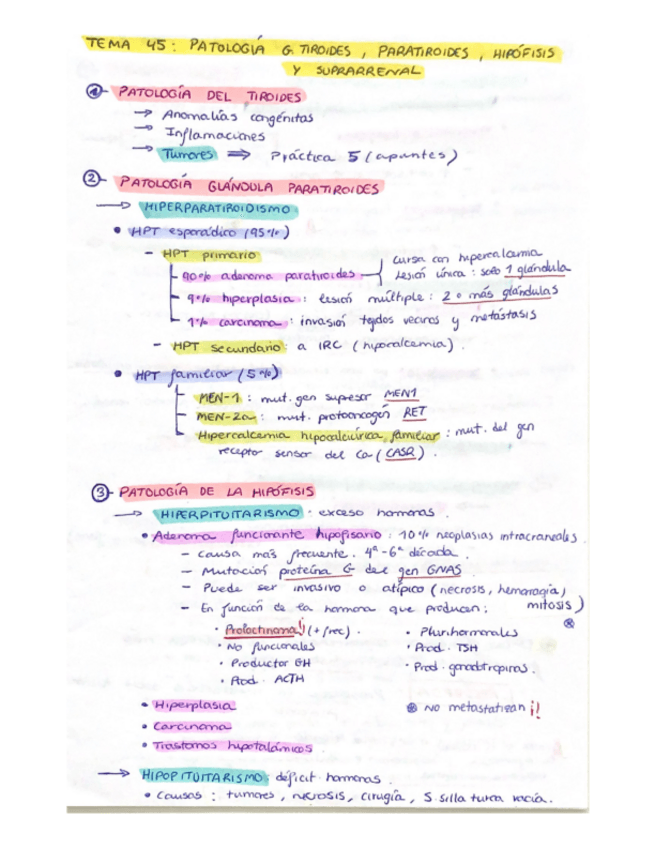 TEMA 45: PATOLOGÍA G. TIROIDES, PARATIROIDES, HIPÓFISIS
Y SUPRARRENAL
① PATOLOGÍA DEL TIROIDES
→ Anomalías congénitas
→ Inflamaciones
→ Tumores ⇒ Práctica 5 (apuntes)
② PATOLOGÍA GLÁNDULA PARATIROIDES
→ HIPERPARATIROIDISMO
• HPT esporádico (95%)
- HPT primario
90% adenoma paratiroides
cursa con hipercalcemia
lesión única: solo 1 glándula
9% hiperplasia: lesión múltiple: 2 o más glándulas
1% carcinoma: invasión tejidos vecinos y metástasis
- HPT secundario: a IRC (hipocalcemia).
• HPT familiar (5%)
MEN-1: mut. gen supresor MEN1
MEN-2a: mut. protooncogén RET
Hipercalcemia hipocalciúrica familiar: mut. del gen
receptor sensor del Ca (CASR).
③ PATOLOGÍA DE LA HIPÓFISIS
→ HIPERPITUITARISMO: exceso hormonas.
• Adenoma funcionante hipofisario: 10% neoplasias intracraneales.
- Causa más frecuente. 4ª-6ª década.
- Mutación proteína G del gen GNAS.
- Puede ser invasivo o atípico (necrosis, hemorragia,
mitosis) ⊛
- En función de la hormona que producen:
• Prolactinoma! (+ frec).
• No funcionales
• Productor GH
• Prod. ACTH
• Plurihormonales
• Prod. TSH
• Prod. gonadotropinas.
• Hiperplasia
⊛ No metastatizan ¡!
• Carcinoma
• Trastornos hipotalámicos.
→ HIPOPITUITARISMO: déficit hormonas.
• Causas: tumores, necrosis, cirugía, S. silla turca vacía.